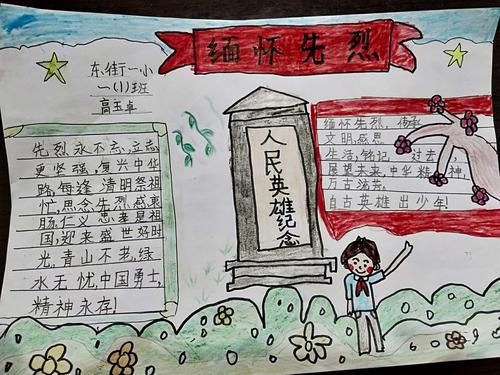 缅怀先烈
东街一小
一(1)班
高玉卓
先烈永不去,立志
更坚强,复兴中华
路,每逢清明祭祖
忙,思念先烈感衷
肠,仁义忠孝星祖
国,迎来盛世好时
光,青山不老,绿
水无忧,中国勇士,
精神永存!
人民英雄纪念
缅怀先烈,传承
文明,感恩
生活,铭记 过去,
展望未来,中华精神,
万古流芳。
自古英雄出少年!